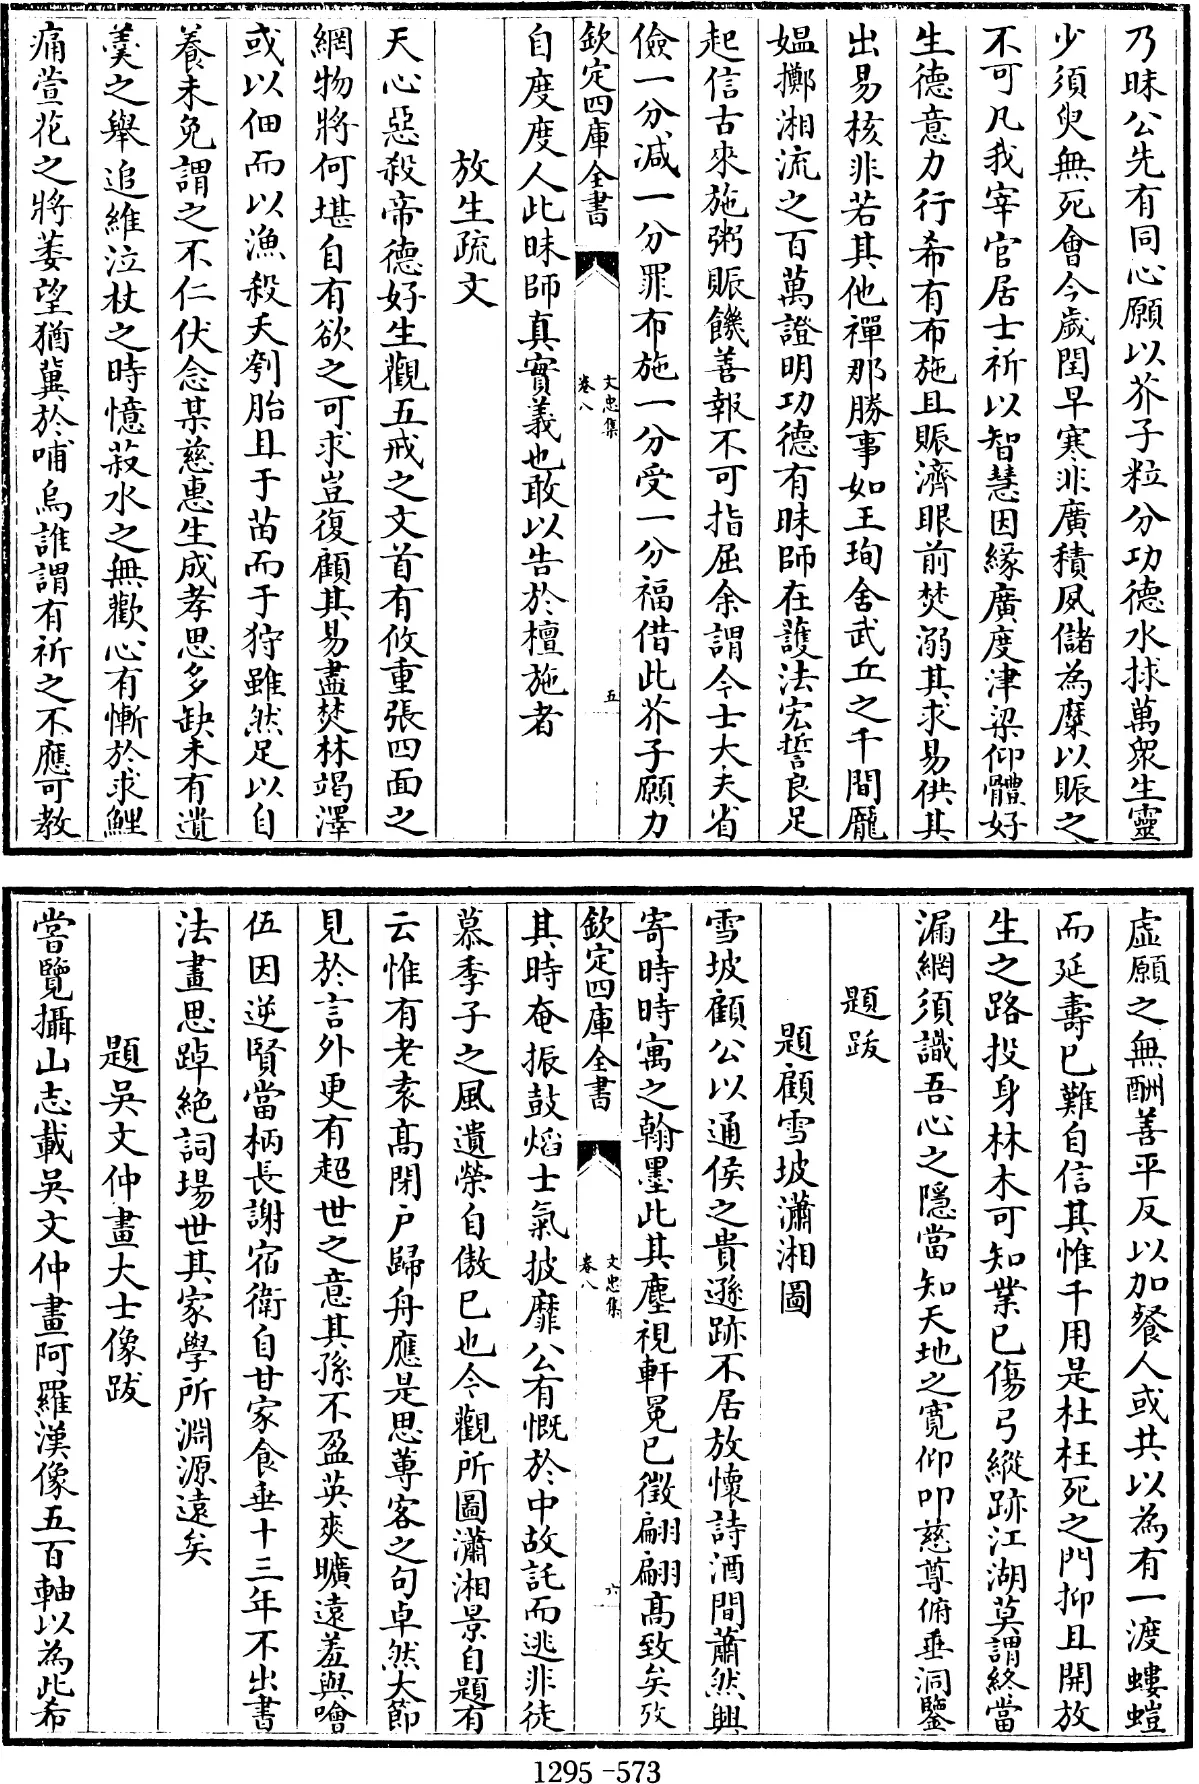 乃昧公先有同心願以芥子粒分功德水捄萬衆生靈
少須臾無死會今歲閏早寒非廣積夙儲為糜以賑之
不可凡我宰官居士祈以智慧因緣廣度津梁仰體好
生德意力行希有布施且賑濟眼前焚溺其求易供其
出易核非若其他禪那勝事如王珣舍武丘之千間龎
媼擲湘流之百萬證明功德有昧師在護法宏誓良足
起信古來施粥賑饑善報不可指屈余謂今士大夫省
儉一分減一分罪布施一分受一分福借此芥子願力
欽定四庫全書
文忠集
卷八
五
自度度人此昧師真實義也敢以告於檀施者
放生疏文
天心惡殺帝德好生觀五戒之文首有攸重張四面之
網物將何堪自有欲之可求豈復顧其易盡焚林竭澤
或以佃而以漁殺夭刳胎且于苗而于狩雖然足以自
養未免謂之不仁伏念某慈惠生成孝思多缺未有遺
羮之舉追維泣杖之時憶菽水之無歡心有慚於求鯉
痛萱花之將萎望猶冀於哺烏誰謂有祈之不應可教
虛願之無酬善平反以加餐人或共以為有一渡螻螘
而延壽已難自信其惟千用是杜枉死之門抑且開放
生之路投身林木可知業已傷弓縱跡江湖莫謂終當
漏網須識吾心之隱當知天地之寛仰叩慈尊俯垂洞鑒
題跋
題顧雪坡瀟湘圖
雪坡顧公以通侯之貴遜跡不居放懷詩酒間蕭然興
寄時時寓之翰墨此其塵視軒冕已徵翩翩髙致矣攷
欽定四庫全書
文忠集
卷八
六
其時奄振鼓熖士氣披靡公有慨於中故託而逃非徒
慕季子之風遺榮自傲已也今觀所圖瀟湘景自題有
云惟有老袁髙閉户歸舟應是思蓴客之句卓然大節
見於言外更有超世之意其孫不盈英爽曠遠羞與噲
伍因逆賢當柄長謝宿衛自甘家食垂十三年不出書
法畫思踔絶詞場世其家學所淵源遠矣
題吳文仲畫大士像跋
嘗覽攝山志載吳文仲畫阿羅漢像五百軸以為此希
1295-573